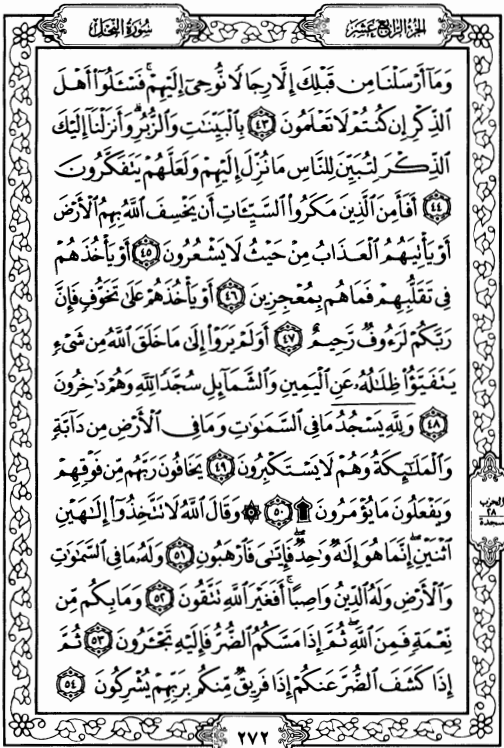 سُورَةُ النَّحۡلِ
الجُزءُ الرَّابِعَ عَشَرَ
وَمَآ أَرۡسَلۡنَا مِن قَبۡلِكَ إِلَّا رِجَالٗا نُّوحِيٓ إِلَيۡهِمۡۖ فَسۡـَٔلُوٓاْ أَهۡلَ
ٱلذِّكۡرِ إِن كُنتُمۡ لَا تَعۡلَمُونَ ٤٣ بِٱلۡبَيِّنَٰتِ وَٱلزُّبُرِۗ وَأَنزَلۡنَآ إِلَيۡكَ
ٱلذِّكۡرَ لِتُبَيِّنَ لِلنَّاسِ مَا نُزِّلَ إِلَيۡهِمۡ وَلَعَلَّهُمۡ يَتَفَكَّرُونَ
٤٤ أَفَأَمِنَ ٱلَّذِينَ مَكَرُواْ ٱلسَّيِّـَٔاتِ أَن يَخۡسِفَ ٱللَّهُ بِهِمُ ٱلۡأَرۡضَ
أَوۡ يَأۡتِيَهُمُ ٱلۡعَذَابُ مِنۡ حَيۡثُ لَا يَشۡعُرُونَ ٤٥ أَوۡ يَأۡخُذَهُمۡ
فِي تَقَلُّبِهِمۡ فَمَا هُم بِمُعۡجِزِينَ ٤٦ أَوۡ يَأۡخُذَهُمۡ عَلَىٰ تَخَوُّفٖ فَإِنَّ
رَبَّكُمۡ لَرَءُوفٞ رَّحِيمٌ ٤٧ أَوَلَمۡ يَرَوۡاْ إِلَىٰ مَا خَلَقَ ٱللَّهُ مِن شَيۡءٖ
يَتَفَيَّؤُاْ ظِلَٰلُهُۥ عَنِ ٱلۡيَمِينِ وَٱلشَّمَآئِلِ سُجَّدٗا لِّلَّهِ وَهُمۡ دَٰخِرُونَ
٤٨ وَلِلَّهِۤ يَسۡجُدُۤ مَا فِي ٱلسَّمَٰوَٰتِ وَمَا فِي ٱلۡأَرۡضِ مِن دَآبَّةٖ
وَٱلۡمَلَٰٓئِكَةُ وَهُمۡ لَا يَسۡتَكۡبِرُونَ ٤٩ يَخَافُونَ رَبَّهُم مِّن فَوۡقِهِمۡ
وَيَفۡعَلُونَ مَا يُؤۡمَرُونَ ۩ ٥٠ ۞ وَقَالَ ٱللَّهُ لَا تَتَّخِذُوٓاْ إِلَٰهَيۡنِ
ٱثۡنَيۡنِۖ إِنَّمَا هُوَ إِلَٰهٞ وَٰحِدٞ فَإِيَّٰيَ فَٱرۡهَبُونِ ٥١ وَلَهُۥ مَا فِي ٱلسَّمَٰوَٰتِ
وَٱلۡأَرۡضِ وَلَهُ ٱلدِّينُ وَاصِبًاۚ أَفَغَيۡرَ ٱللَّهِ تَتَّقُونَ ٥٢ وَمَا بِكُم مِّن
نِّعۡمَةٖ فَمِنَ ٱللَّهِۖ ثُمَّ إِذَا مَسَّكُمُ ٱلضُّرُّ فَإِلَيۡهِ تَجۡـَٔرُونَ ٥٣ ثُمَّ
إِذَا كَشَفَ ٱلضُّرَّ عَنكُمۡ إِذَا فَرِيقٞ مِّنكُم بِرَبِّهِمۡ يُشۡرِكُونَ ٥٤
الحزب
٢٨
سجدة
٢٧٢